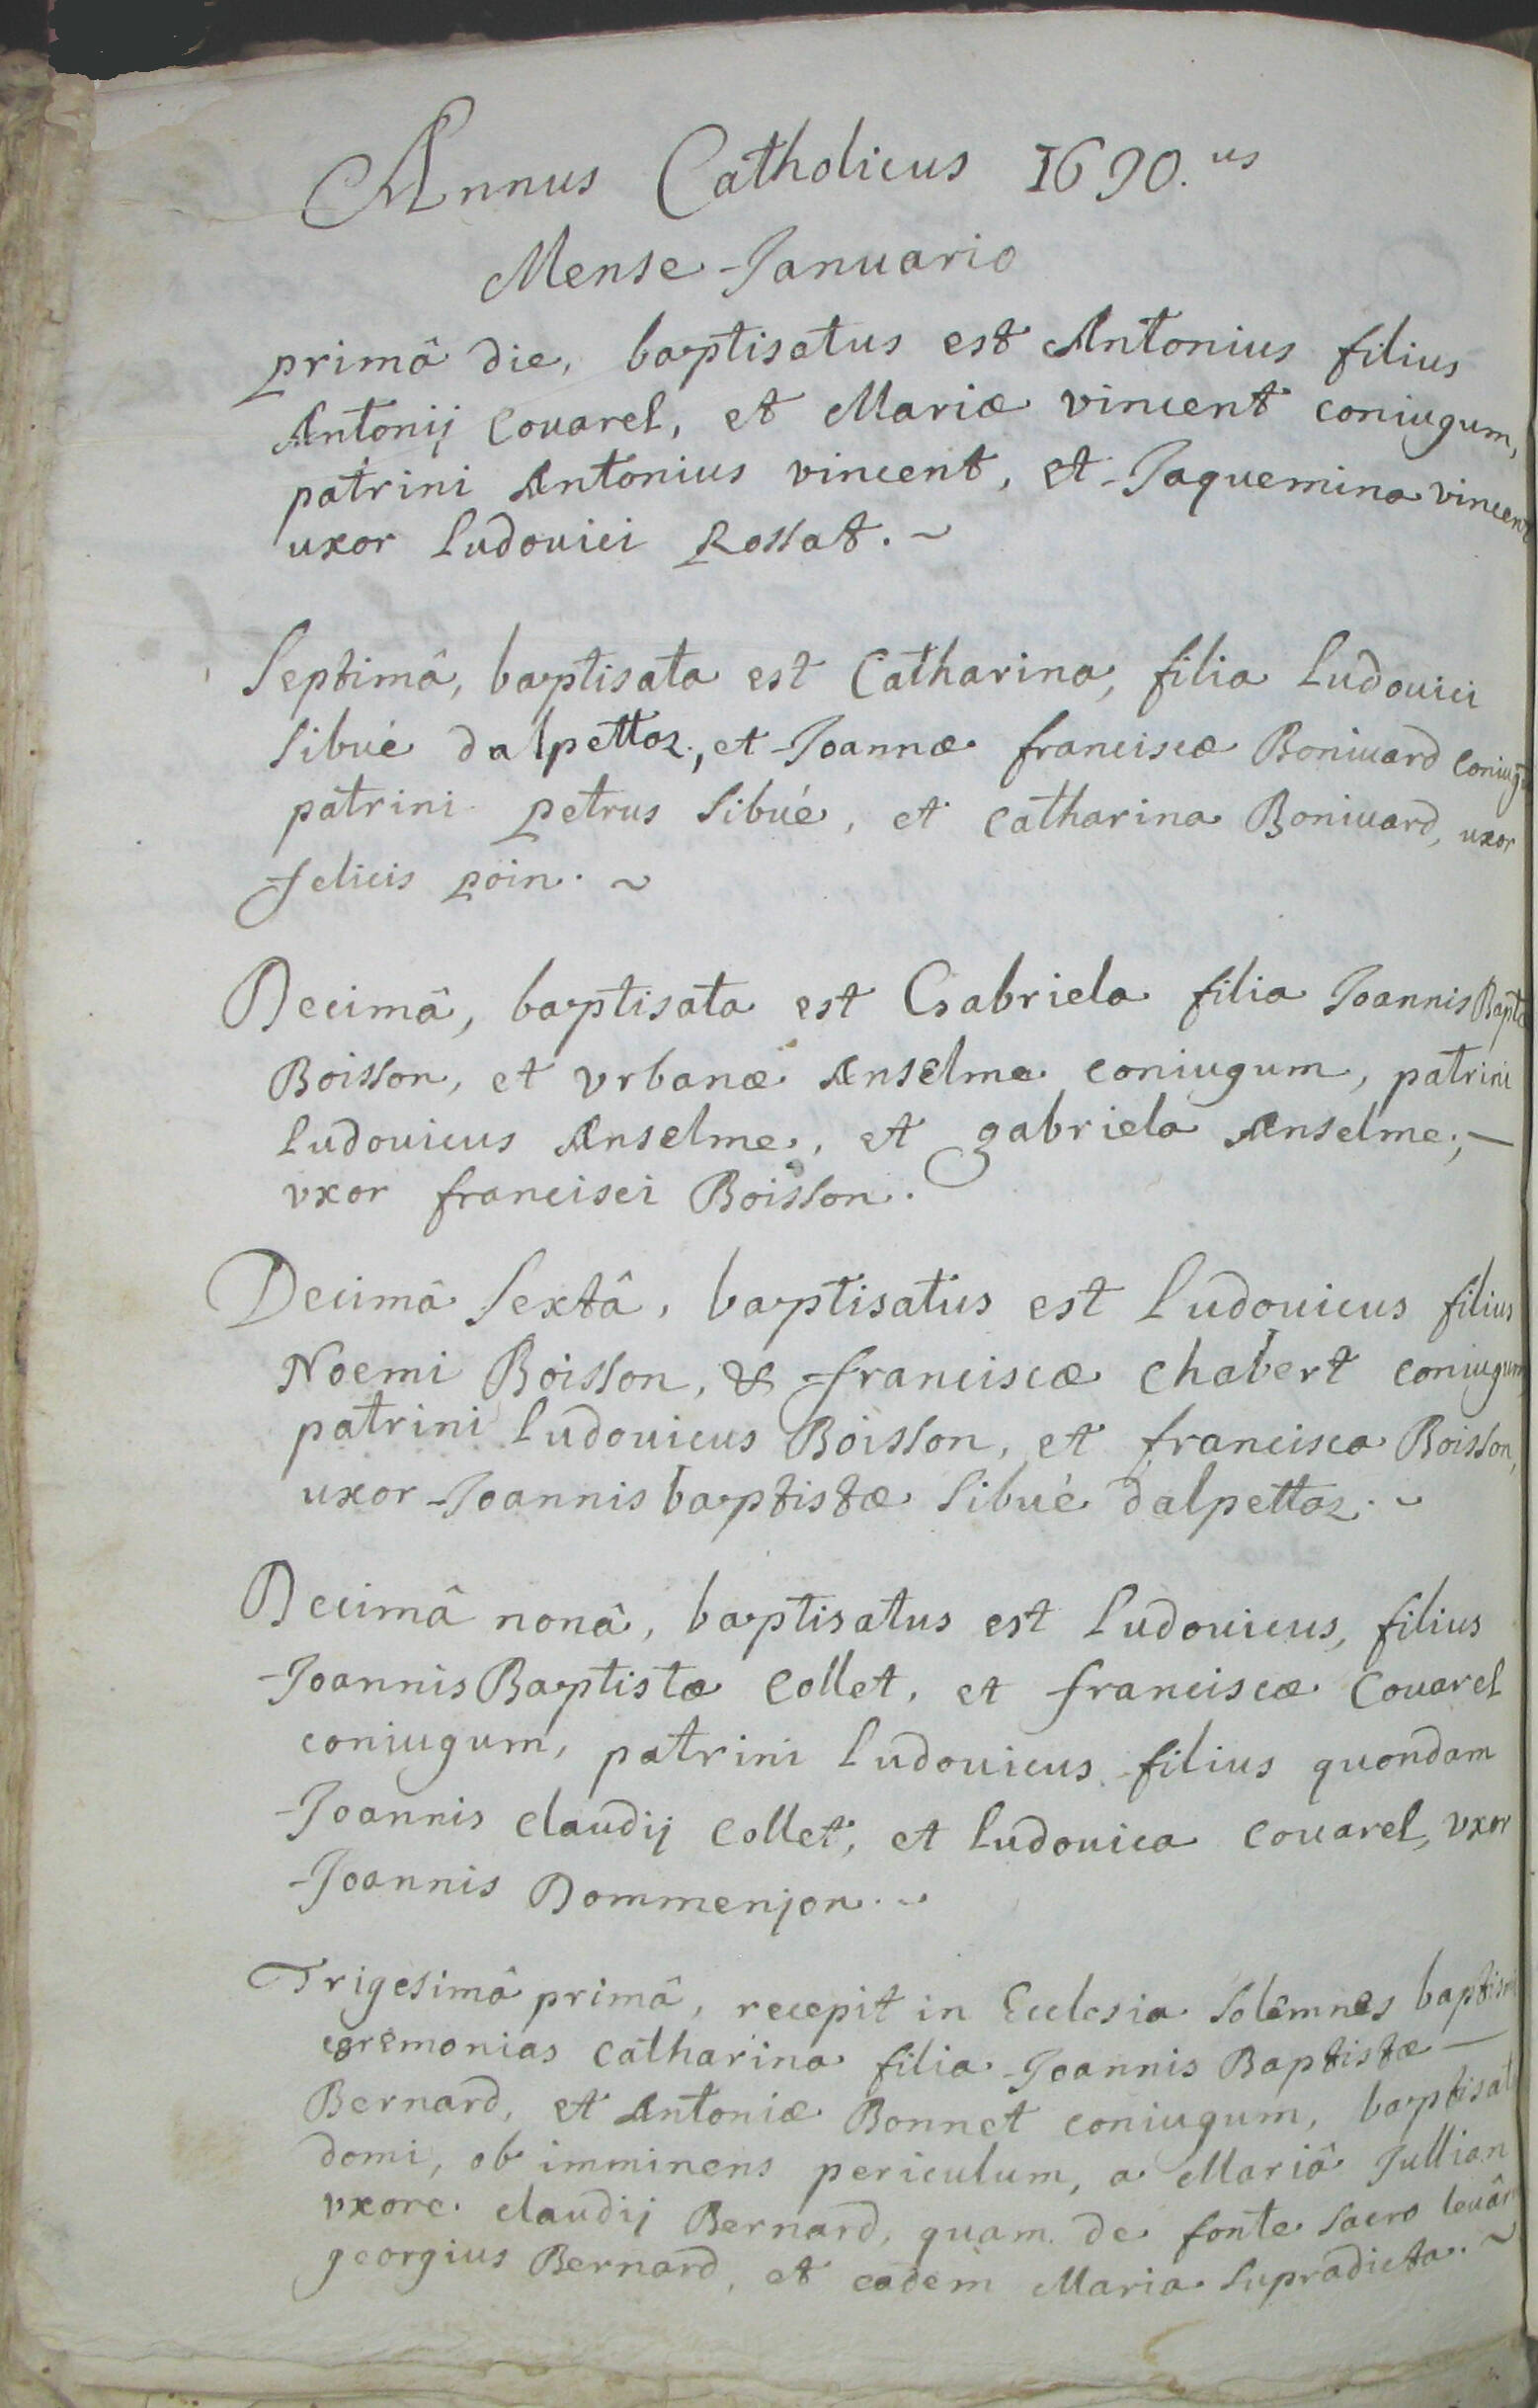 Annus Catholicus 1690.us
Mense Ianuario
primâ die, baptisatus est Antonius filius
Antonij Couarel, et Mariæ vincent coniugum,
patrini Antonius vincent, et Jaquemina vincent
uxor Ludouici Rossat. ~
Septimâ, baptisata est Catharina, filia Ludouici
Sibué dalpettaz, et Joannæ franciscæ Boniuard coniug
patrini petrus Sibué, et Catharina Boniuard, uxor
felicis poin. ~
Decimâ, baptisata est Gabriela filia Joannis Bapt
Boisson, et vrbanæ Anselme coniugum, patrini
Ludouicus Anselme, et gabriela Anselme, —
vxor francisci Boisson.
Decimâ Sextâ, baptisatus est Ludouicus filius
Noemi Boisson, & franciscæ Chabert coniugum
patrini Ludouicus Boisson, et francisca Boisson,
uxor Joannis baptistæ Sibué dalpettaz. ~
Decimâ nonâ, baptisatus est Ludouicus, filius
Joannis Baptistæ Collet, et franciscæ Couarel
coniugum, patrini Ludouicus filius quondam
Joannis Claudij Collet, et Ludouica Couarel, vxor
Joannis Dommenjon. ~
Trigesimâ primâ, recepit in Ecclesia Solemnes baptismi
ceremonias Catharina filia Joannis Baptistæ —
Bernard, et Antoniæ Bonnet coniugum, baptisat
domi, ob imminens periculum, a Mariâ Jullian
vxore Claudij Bernard, quam de fonte Sacro leuâr
georgius Bernard, et eadem Maria Supradicta. ~